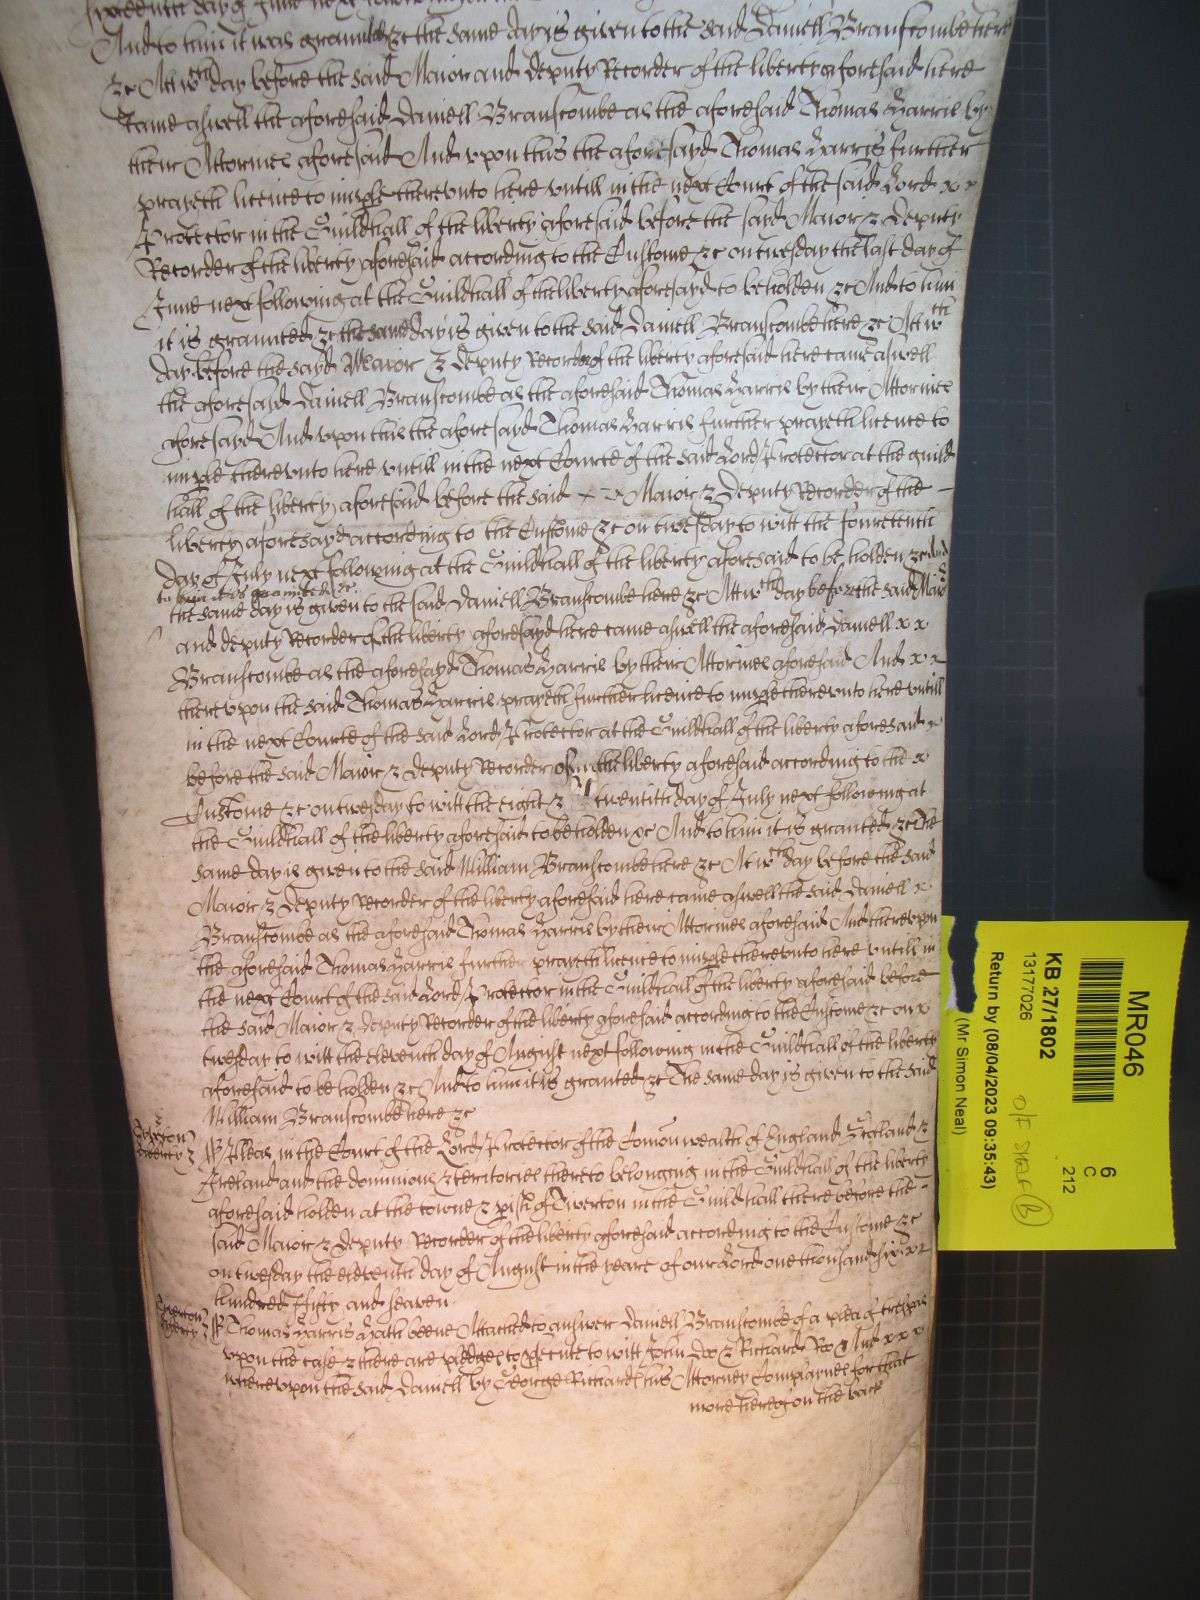 day of June next
And to him it was graunted &c the same day is given to the said Daniell Branscombe here
&c Att wch day before the said Maior and deputy Recorder of the liberty aforesaid here
Came aswell the aforesaid Daniell Branscombe as the aforesaid Thomas Harris by
their Attornies aforesaid And upon this the aforesayd Thomas Harris further
prayeth licence to imple thereunto here untill in the next Court of the said Lord x x
Protector in the Guildhall of the liberty aforesaid before the sayd Maior & deputy
Recorder of the liberty aforesaid according to the Custome &c on twesday the last day of
June next following at the Guildhall of the liberty aforesayd to be holden &c And to him
it is graunted &c the same day is given to the said Daniell Branscombe here &c Att wch
day before the sayd Maior & deputy Recorder of the liberty aforesaid here came aswell
the aforesayd Daniell Branscombe as the aforesaid Thomas Harris by their Attornies
aforesayd And upon this the aforesayd Thomas Harris further prayeth licence to
imple thereunto here untill in the next Courte of the said Lord Protector at the guild
hall of the liberty aforesaid before the said Maior & deputy Recorder of the
liberty aforesayd according to the Custome &c on twesday to witt the fourteenth
day of July next following at the Guildhall of the liberty aforesaid to be holden &c And
to him it is graunted &c
the same day is given to the said Daniell Branscombe here &c Att wch day before the said Maior
and deputy Recorder of the liberty aforesayd here came aswell the aforesaid Daniell x x
Branscombe as the aforesayd Thomas Harris by their Attornies aforesaid And x x
thereupon the said Thomas Harris prayeth further licence to imple thereunto here untill
in the next Courte of the said Lord Protector at the Guildhall of the liberty aforesaid x
before the said Maior & deputy Recorder of the liberty aforesaid according to the x
Custome &c on twesday to witt the eight & twentith day of July next following at
the Guildhall of the liberty aforesaid to be holden &c And to him it is granted &c The
same day is given to the said William Branscombe here &c At wch day before the said
Maior & deputy Recorder of the liberty aforesaid here came aswell the said Daniell x
Branscombe as the aforesaid Thomas Harris by their Attornies aforesaid And thereupon
the aforesaid Thomas Harris further prayeth licence to imple thereunto here untill in
the next Court of the said Lord Protector in the Guildhall of the liberty aforesaid before
the said Maior & deputy Recorder of the liberty aforesaid according to the Custome &c on x
twesday to witt the eleventh day of August next following in the Guildhall of the liberty
aforesaid to be holden &c And to him it is granted &c The same day is given to the said
William Branscombe here &c
Tiverton
liberty
Pleas in the Court of the Lord Protector of the Comon wealth of England Scotland &
Ireland and the dominions & territories thereto belonging in the Guildhall of the liberty
aforesaid holden at the towne & pish of Tiverton in the Guildhall there before the
said Maior & deputy Recorder of the liberty aforesaid according to the Custome &c
on twesday the eleventh day of August in the yeare of our Lord one thousand six x x
hundred fifty and seaven
Tiverton
liberty
Thomas Harris hath beene Attached to answer Daniell Branscombe of a plea of trespas
upon the case & there are pledges to psecute to witt John Doo & Richard Roo And x x x
whereupon the said Daniell by George Richards his Attorney Complaynes for that
more hereof on the back
MR046
6
C
212
KB 27/1802
13177026
Return by (08/04/2023 09:35:43)
(Mr Simon Neal)
O/F SHELF B